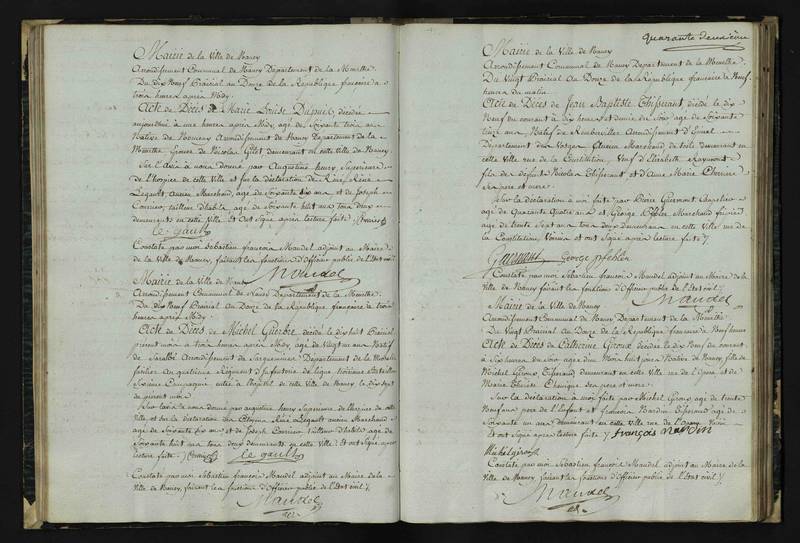 Mairie de la Ville de Nancy
Arrondissement Communal de Nancy Departement de la Meurthe.
Du dix Neuf Prairial an Douze de la Republique francaise a
trois heures après Midy.
Acte de Décès de Marie Louise Dupuit décédée
aujourd'hui a une heure après Midy, agé de Soixante trois ans
Native de Arrondissement de Nancy Departement de la
Meurthe Epouse de Nicolas Gilot demeurant en cette Ville de Nancy.
Sur l'Avis à nous donné par Augustine henry Supérieure
de l'hospice de cette Ville et sur la déclaration de René
Legault, ancien Marchand, agé de Soixante dix ans et de Joseph
Cornier, tailleur d'habits agé de Soixante huit ans tous deux
demeurants en cette Ville. Et ont Signé après lecture faite /.
Le gault
Constaté par moi Sébastien françois Mandel adjoint au Maire de
la Ville de Nancy, faisant les fonctions d'Officier public de l'Etat civil /.
Mandel
Mairie de la Ville de Nancy
Arrondissement Communal de Nancy Departement de la Meurthe.
Du dix Neuf Prairial an Douze de la Republique francaise à trois
heures après Midy.
Acte de Décès de Michel décédé le dix huit Prairial
présent mois a trois heures après Midy, agé de Vingt un ans Natif
de Saralbe Arrondissement de Sarguemines Departement de la Moselle
fusilier au quatrième Régiment d'Infanterie de ligne troisième Bataillon
Sixième Compagnie entré a l'hopital de cette Ville de Nancy, le dix sept
de present mois.
Sur l'avis a nous donné par augustine henry Supérieure de l'hospice de cette
Ville et sur la déclaration des Citoyens René Legault ancien Marchand
agé de Soixante dix ans et de Joseph Cornier tailleur d'habits agé de
Soixante huit ans tous deux demeurants en cette Ville. Et ont Signé après
lecture faite /. Le gault
Constaté par moi Sébastien françois Mandel adjoint au Maire de la
Ville de Nancy, faisant les fonctions d'Officier public de l'Etat civil /.
Mandel
quarante deuxième
Mairie de la Ville de Nancy
Arrondissement Communal de Nancy Departement de la Meurthe.
Du Vingt Prairial an Douze de la Republique francaise à Neuf
heures du matin.
Acte de Décès de Jean Baptiste Thisserant décédé le dix
Neuf du courant à dix heures et demie du Soir, agé de Soixante
treize ans, Natif de Arrondissement d'Epinal
Departement des Vosges, Ancien Marchand de toile demeurant en
cette Ville rue de la Constitution, Veuf d'Elisabeth
fils de défunt Nicolas Thisserant et d'Anne Marie
ses pere et mere.
Sur la déclaration à moi faite par Pierre Guermont Chapelier
agé de Quarante Quatre ans et George Pfehler Marchand
agé de trente Sept ans tous deux Demeurant en cette Ville rue de
la Constitution, Voisins et ont Signé après lecture faite /.
George pfehler
Constaté par moi Sébastien françois Mandel adjoint au Maire de la
Ville de Nancy faisant les fonctions d'Officier public de l'Etat civil /.
Mandel
Mairie de la Ville de Nancy
Arrondissement Communal de Nancy Departement de la Meurthe
Du Vingt Prairial an Douze de la Republique francaise à Neuf heures
Acte de Décès de Catherine Giroux décédée le dix Neuf du courant
à Six heures du soir agée d'un Mois huit jours Native de Nancy, fille de
Michel Giroux Tisserand demeurant en cette Ville rue de l'Opera et de
Marie Thérèse ses pere et mere.
Sur la déclaration à moi faite par Michel Giroux agé de trente
Neuf ans pere de l'Enfant et françois Nardin Tisserand agé de
Soixante un ans demeurant en cette Ville rue de
Et ont Signé après lecture faite /. françois nardin
Michel giroux
Constaté par moi Sébastien françois Mandel adjoint au Maire de la
Ville de Nancy, faisant les fonctions d'Officier public de l'Etat civil /.
Mandel